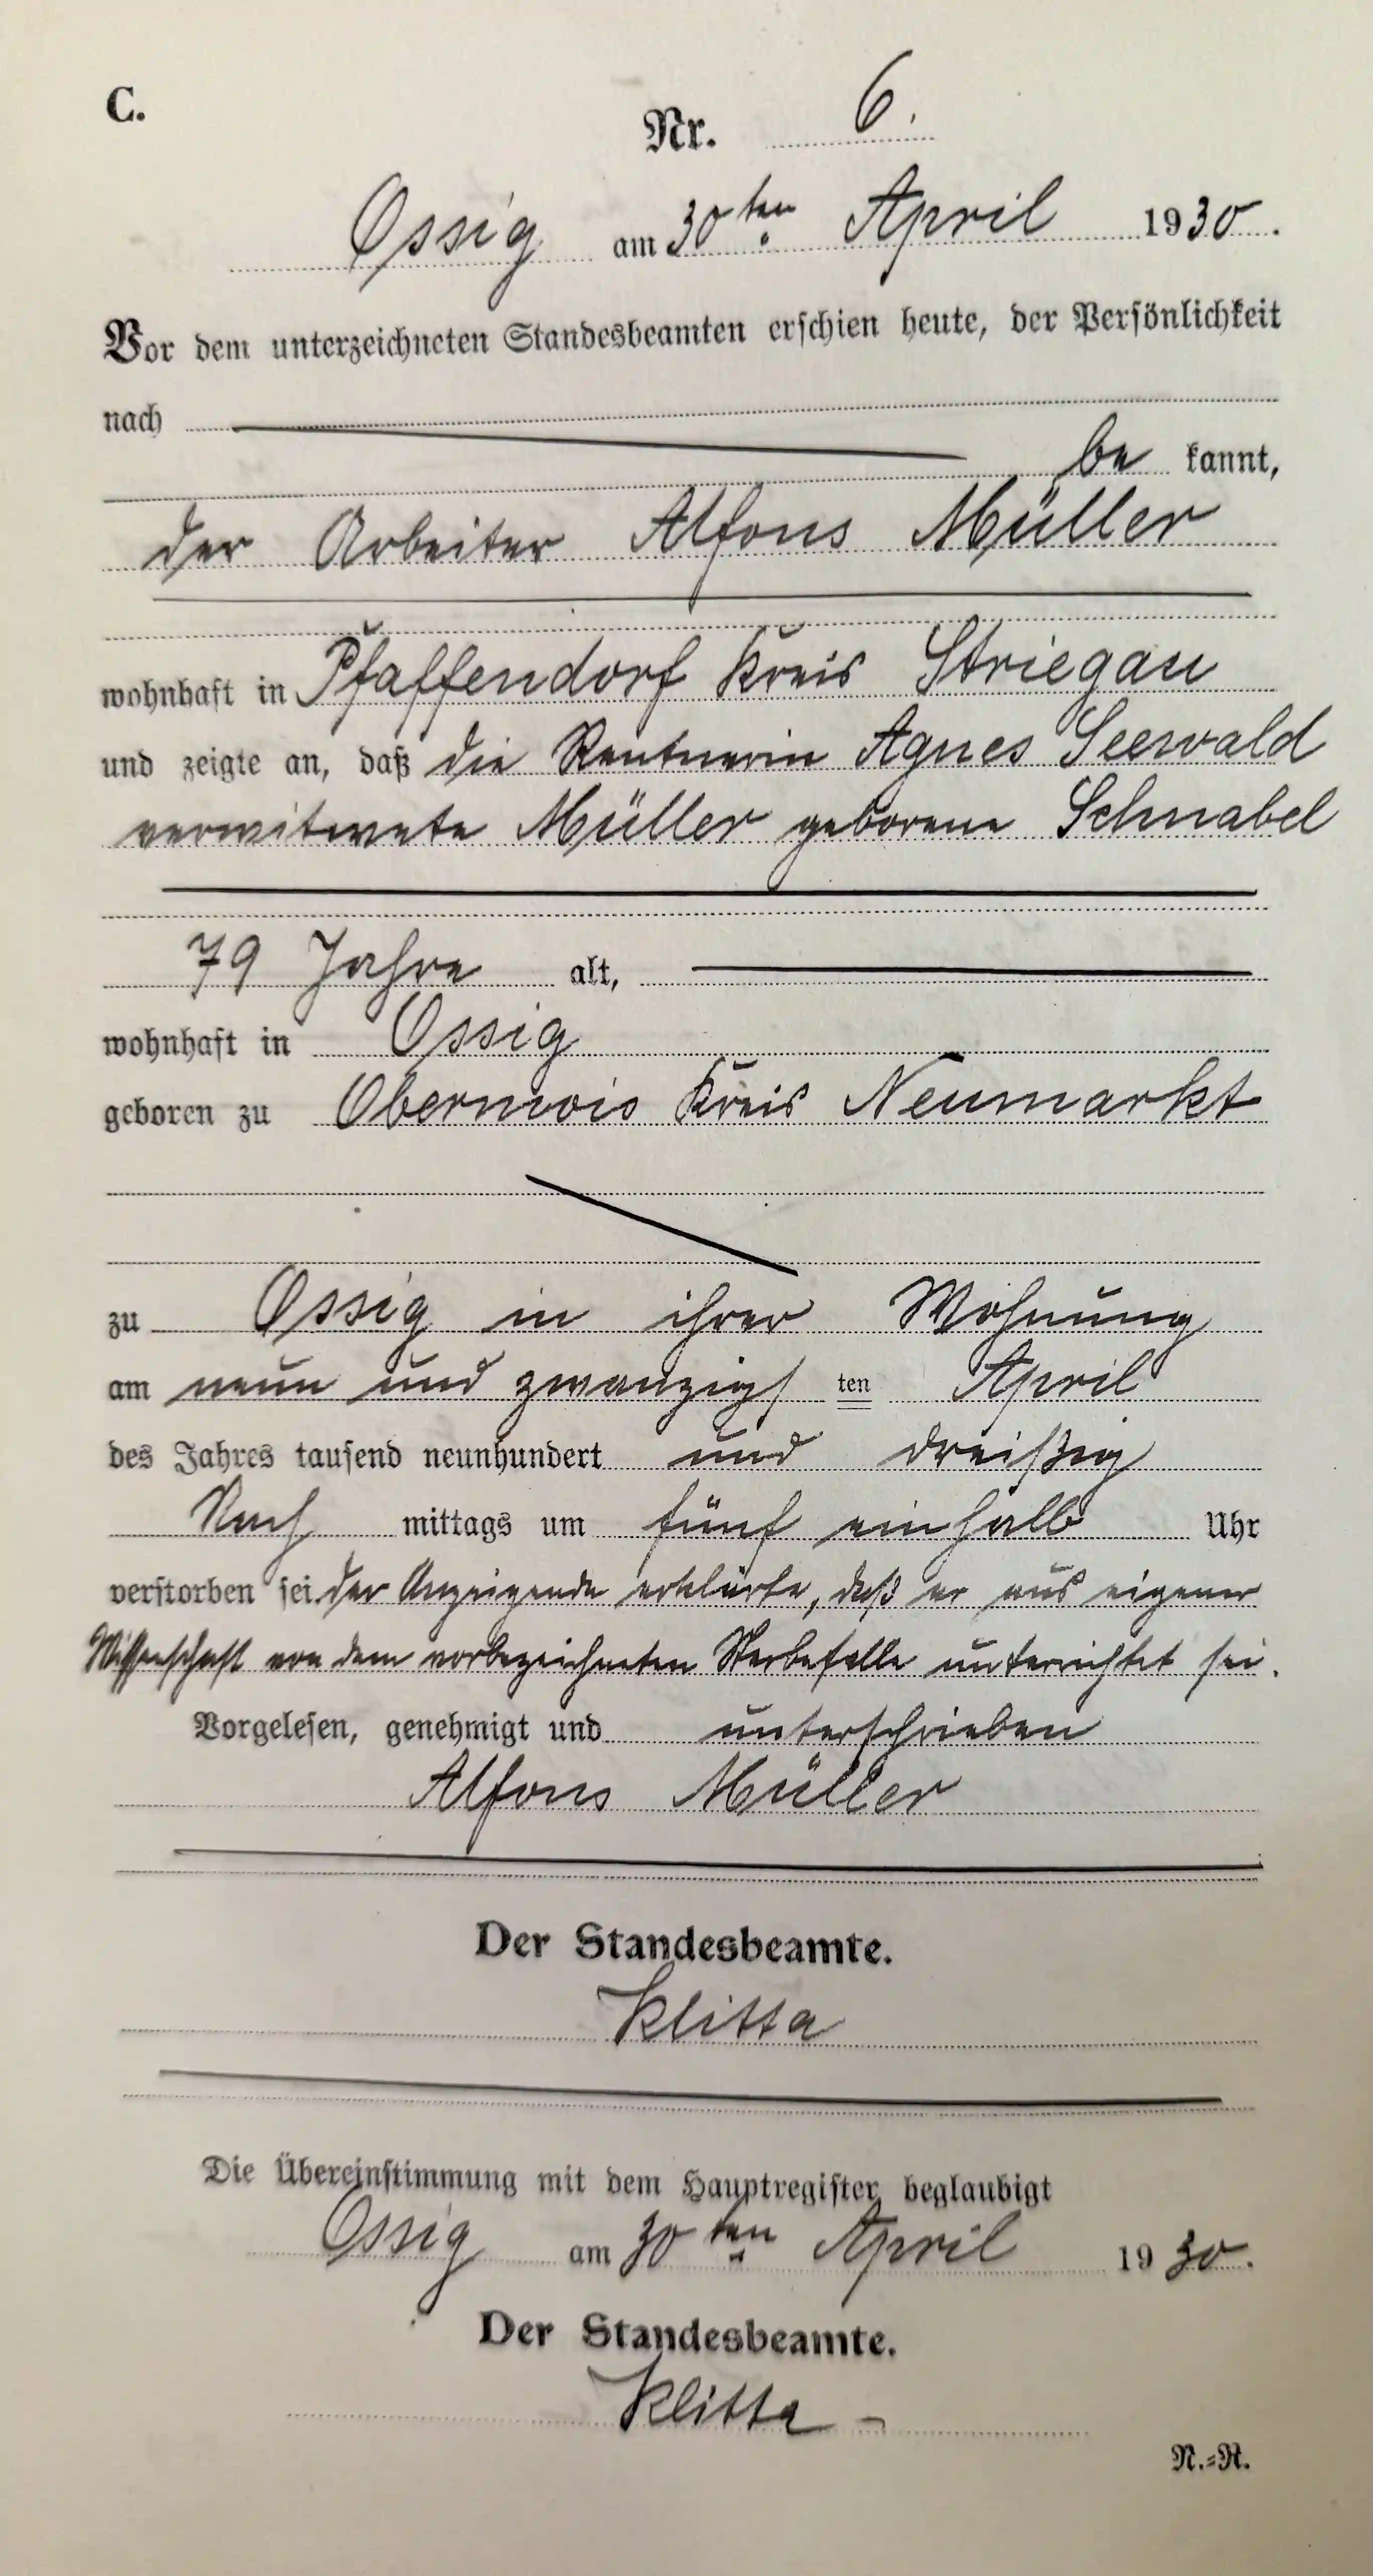 C.
Nr. 6.
Ossig am 30ten April 1930.
Vor dem unterzeichneten Standesbeamten erschien heute, der Persönlichkeit
nach
be kannt,
der Arbeiter Alfons Müller
wohnhaft in Pfaffendorf Kreis Striegau
und zeigte an, daß die Rentnerin Agnes Seewald
verwitwete Müller geborene Schnabel
79 Jahre alt,
wohnhaft in Ossig
geboren zu Obermois Kreis Neumarkt
zu Ossig in ihrer Wohnung
am neun und zwanzigs ten April
des Jahres tausend neunhundert und dreißig
Nach mittags um fünf einhalb Uhr
verstorben sei. der Anzeigende erklärte, daß er aus eigener
Wissenschaft von dem vorbezeichneten Sterbefalle unterrichtet sei.
Vorgelesen, genehmigt und unterschrieben
Alfons Müller
Der Standesbeamte.
Klitta
Die Übereinstimmung mit dem Hauptregister beglaubigt
Ossig am 30ten April 1930.
Der Standesbeamte.
Klitta
N.=R.